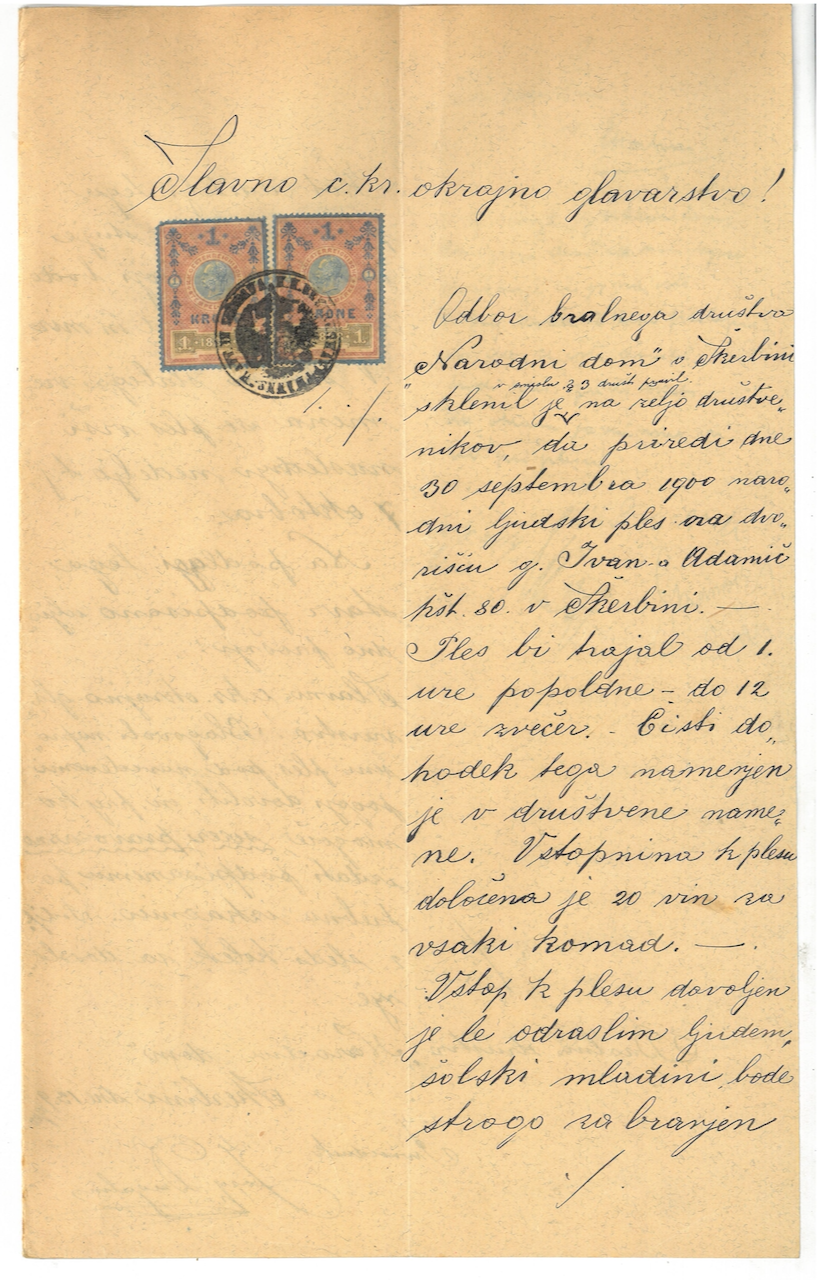 Slavno c. kr. okrajno glavarstvo!
1 1
KRONE
1 1
Odbor bralnega društva
„Narodni dom" v Škerbini
v smislu § 3 družt. pravil
sklenil je, na željo društve„
nikov, da priredi dne
30 septembra 1900 naro„
dni ljudski ples na dvo„
rišču g. Ivan-a Adamič
hšt. 80. v Škerbini. —
Ples bi trajal od 1.
ure popoldne – do 12
ure zvečer. - Čisti do„
hodek tega namenjen
je v društvene name„
ne. Vstopnina k plesu
določena je 20 vin za
vsaki komad. — .
Vstop k plesu dovoljen
je le odraslim ljudem,
šolski mladini bode
strogo za branjen
./.